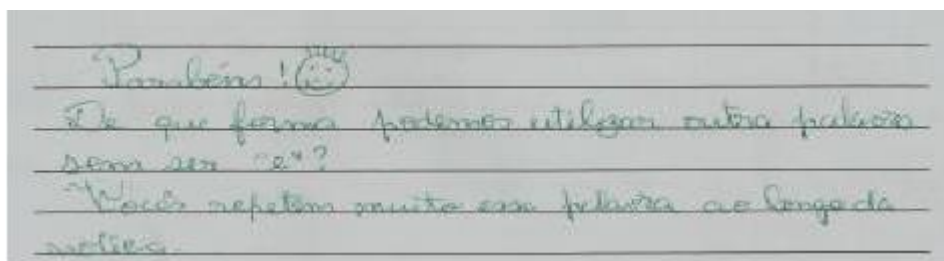 Parabéns!
De que forma podemos utilizar outra palavra
sem ser "e"?
Vocês repetem muito essa palavra ao longo da
notícia.